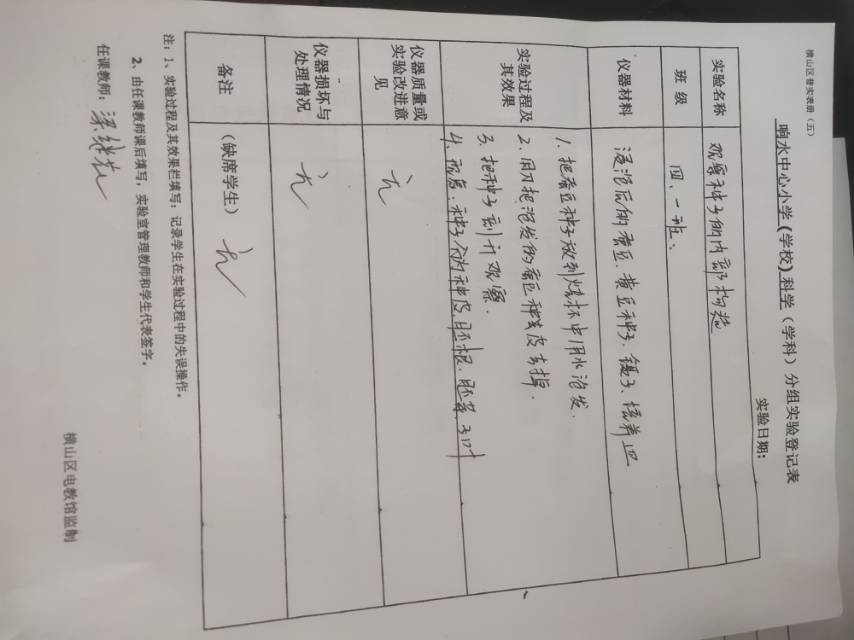 横山区普实表册（五）
响水中心小学(学校)科学（学科）分组实验登记表
实验日期：
实验名称 观察种子的内部构造
班级 四、一班：
仪器材料 浸泡后的蚕豆、黄豆种子、镊子、培养皿
实验过程及
其效果
1、把蚕豆种子放到烧杯中用水泡发.
2、用刀把泡发的蚕豆种 皮去掉.
3、把种子剥开观察.
4、 种子分为种皮.胚根.胚芽.子叶
仪器质量或
实验改进意
见
无
仪器损坏与
处理情况
无
备注 （缺席学生） 无
注：1、实验过程及其效果栏填写：记录学生在实验过程中的失误操作。
2、由任课教师课后填写，实验室管理教师和学生代表签字。
任课教师：梁
横山区电教馆监制